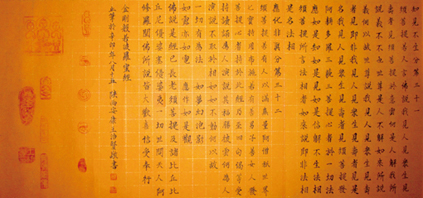 知見不生分第三十一
須菩提若人言佛說我見人見眾生見
壽者見須菩提於意云何是人解我所
說義不不也世尊是人不解如來所說
義何以故世尊說我見人見眾生見壽
者見即非我見人見眾生見壽者見是
名我見人見眾生見壽者見須菩提發
阿耨多羅三藐三菩提心者於一切法
應如是知如是見如是信解不生法相
須菩提所言法相者如來說即非法相
是名法相
應化非真分第三十二
須菩提若有人以滿無量阿僧祇世界
七寶持用布施若有善男子善女人發
菩薩心者持於此經乃至四句偈等受
持讀誦為人演說其福勝彼云何為人
演說不取於相如如不動何以故
一切有為法 如夢幻泡影
如露亦如電 應作如是觀
佛說是經已長老須菩提及諸比丘比
丘尼優婆塞優婆夷一切世間天人阿
修羅聞佛所說皆大歡喜信受奉行
金剛般若波羅蜜經